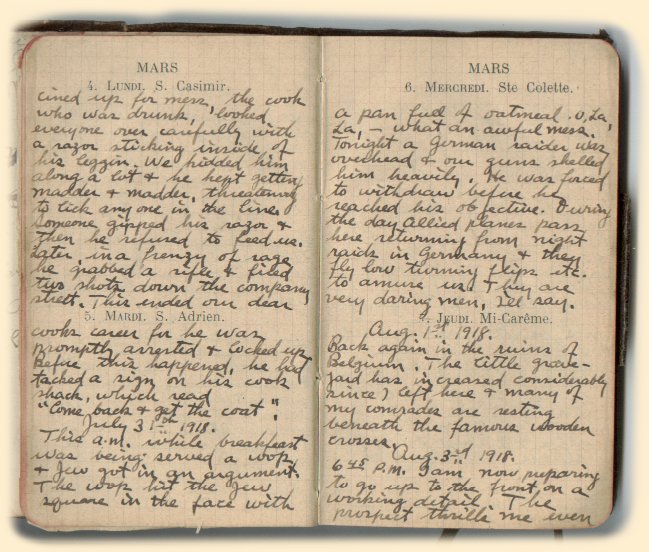 MARS
4. LUNDI. S. Casimir.
cined up for mess, the cook
who was drunk, looked
everyone over carefully with
a razor sticking inside of
his leggin. We kidded him
along a lot & he kept getting
madder & madder, threatening
to lick any one in the line.
Someone gipped his razor &
then he refused to feed us.
Later, in a frenzy of rage
he grabbed a rifle & fired
two shots down the company
street. This ended our dear
5. MARDI. S. Adrien.
cooks career for he was
promptly arrested & locked up
Before this happened, he had
tacked a sign on his cook
shack, which read
"Come back & get the coat".
July 31st 1918.
This a.m. while breakfast
was being served a wop
& Jew got in an argument.
The wop hit the Jew
square in the face with
MARS
6. MERCREDI. Ste Colette.
a pan full of oatmeal. O, La,
La, - what an awful mess.
Tonight a German raider was
overhead & our guns shelled
him heavily. He was forced
to withdraw before he
reached his objective. During
the day Allied planes pass
here returning from night
raids in Germany & they
fly low turning flips etc.
to amuse us. They are
very daring men, I'll say.
7. JEUDI. Mi-Carême.
Aug. 1st 1918.
Back again in the ruins of
Belgium. The little grave-
yard has increased considerably
since I left here & many of
my comrades are resting
beneath the famous wooden
crosses.
Aug. 3rd 1918.
6 45 P.M. I am now preparing
to go up to the front on a
working detail. The
prospect thrills me even